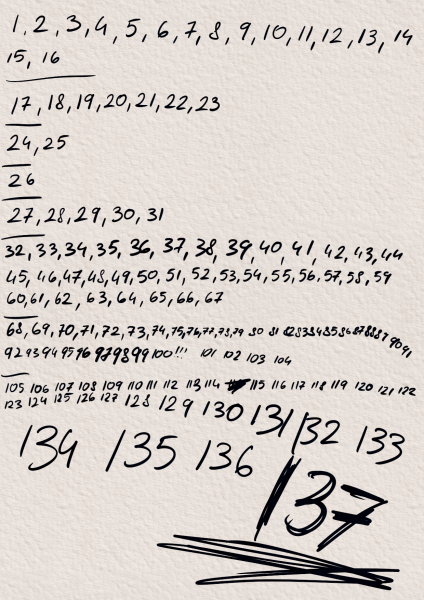 1, 2, 3, 4, 5, 6, 7, 8, 9, 10, 11, 12, 13, 14
15, 16
17, 18, 19, 20, 21, 22, 23
24, 25
26
27, 28, 29, 30, 31
32, 33, 34, 35, 36, 37, 38, 39, 40, 41, 42, 43, 44
45, 46, 47, 48, 49, 50, 51, 52, 53, 54, 55, 56, 57, 58, 59
60, 61, 62, 63, 64, 65, 66, 67
68, 69, 70, 71, 72, 73, 74, 75, 76, 77, 78, 79 80 81 82 83 84 85 86 87 88 89 90 91
92 93 94 95 96 97 98 99 100!!! 101 102 103 104
105 106 107 108 109 110 111 112 113 114 115 116 117 118 119 120 121 122
123 124 125 126 127 128 129 130 131 132 133
134 135 136
137